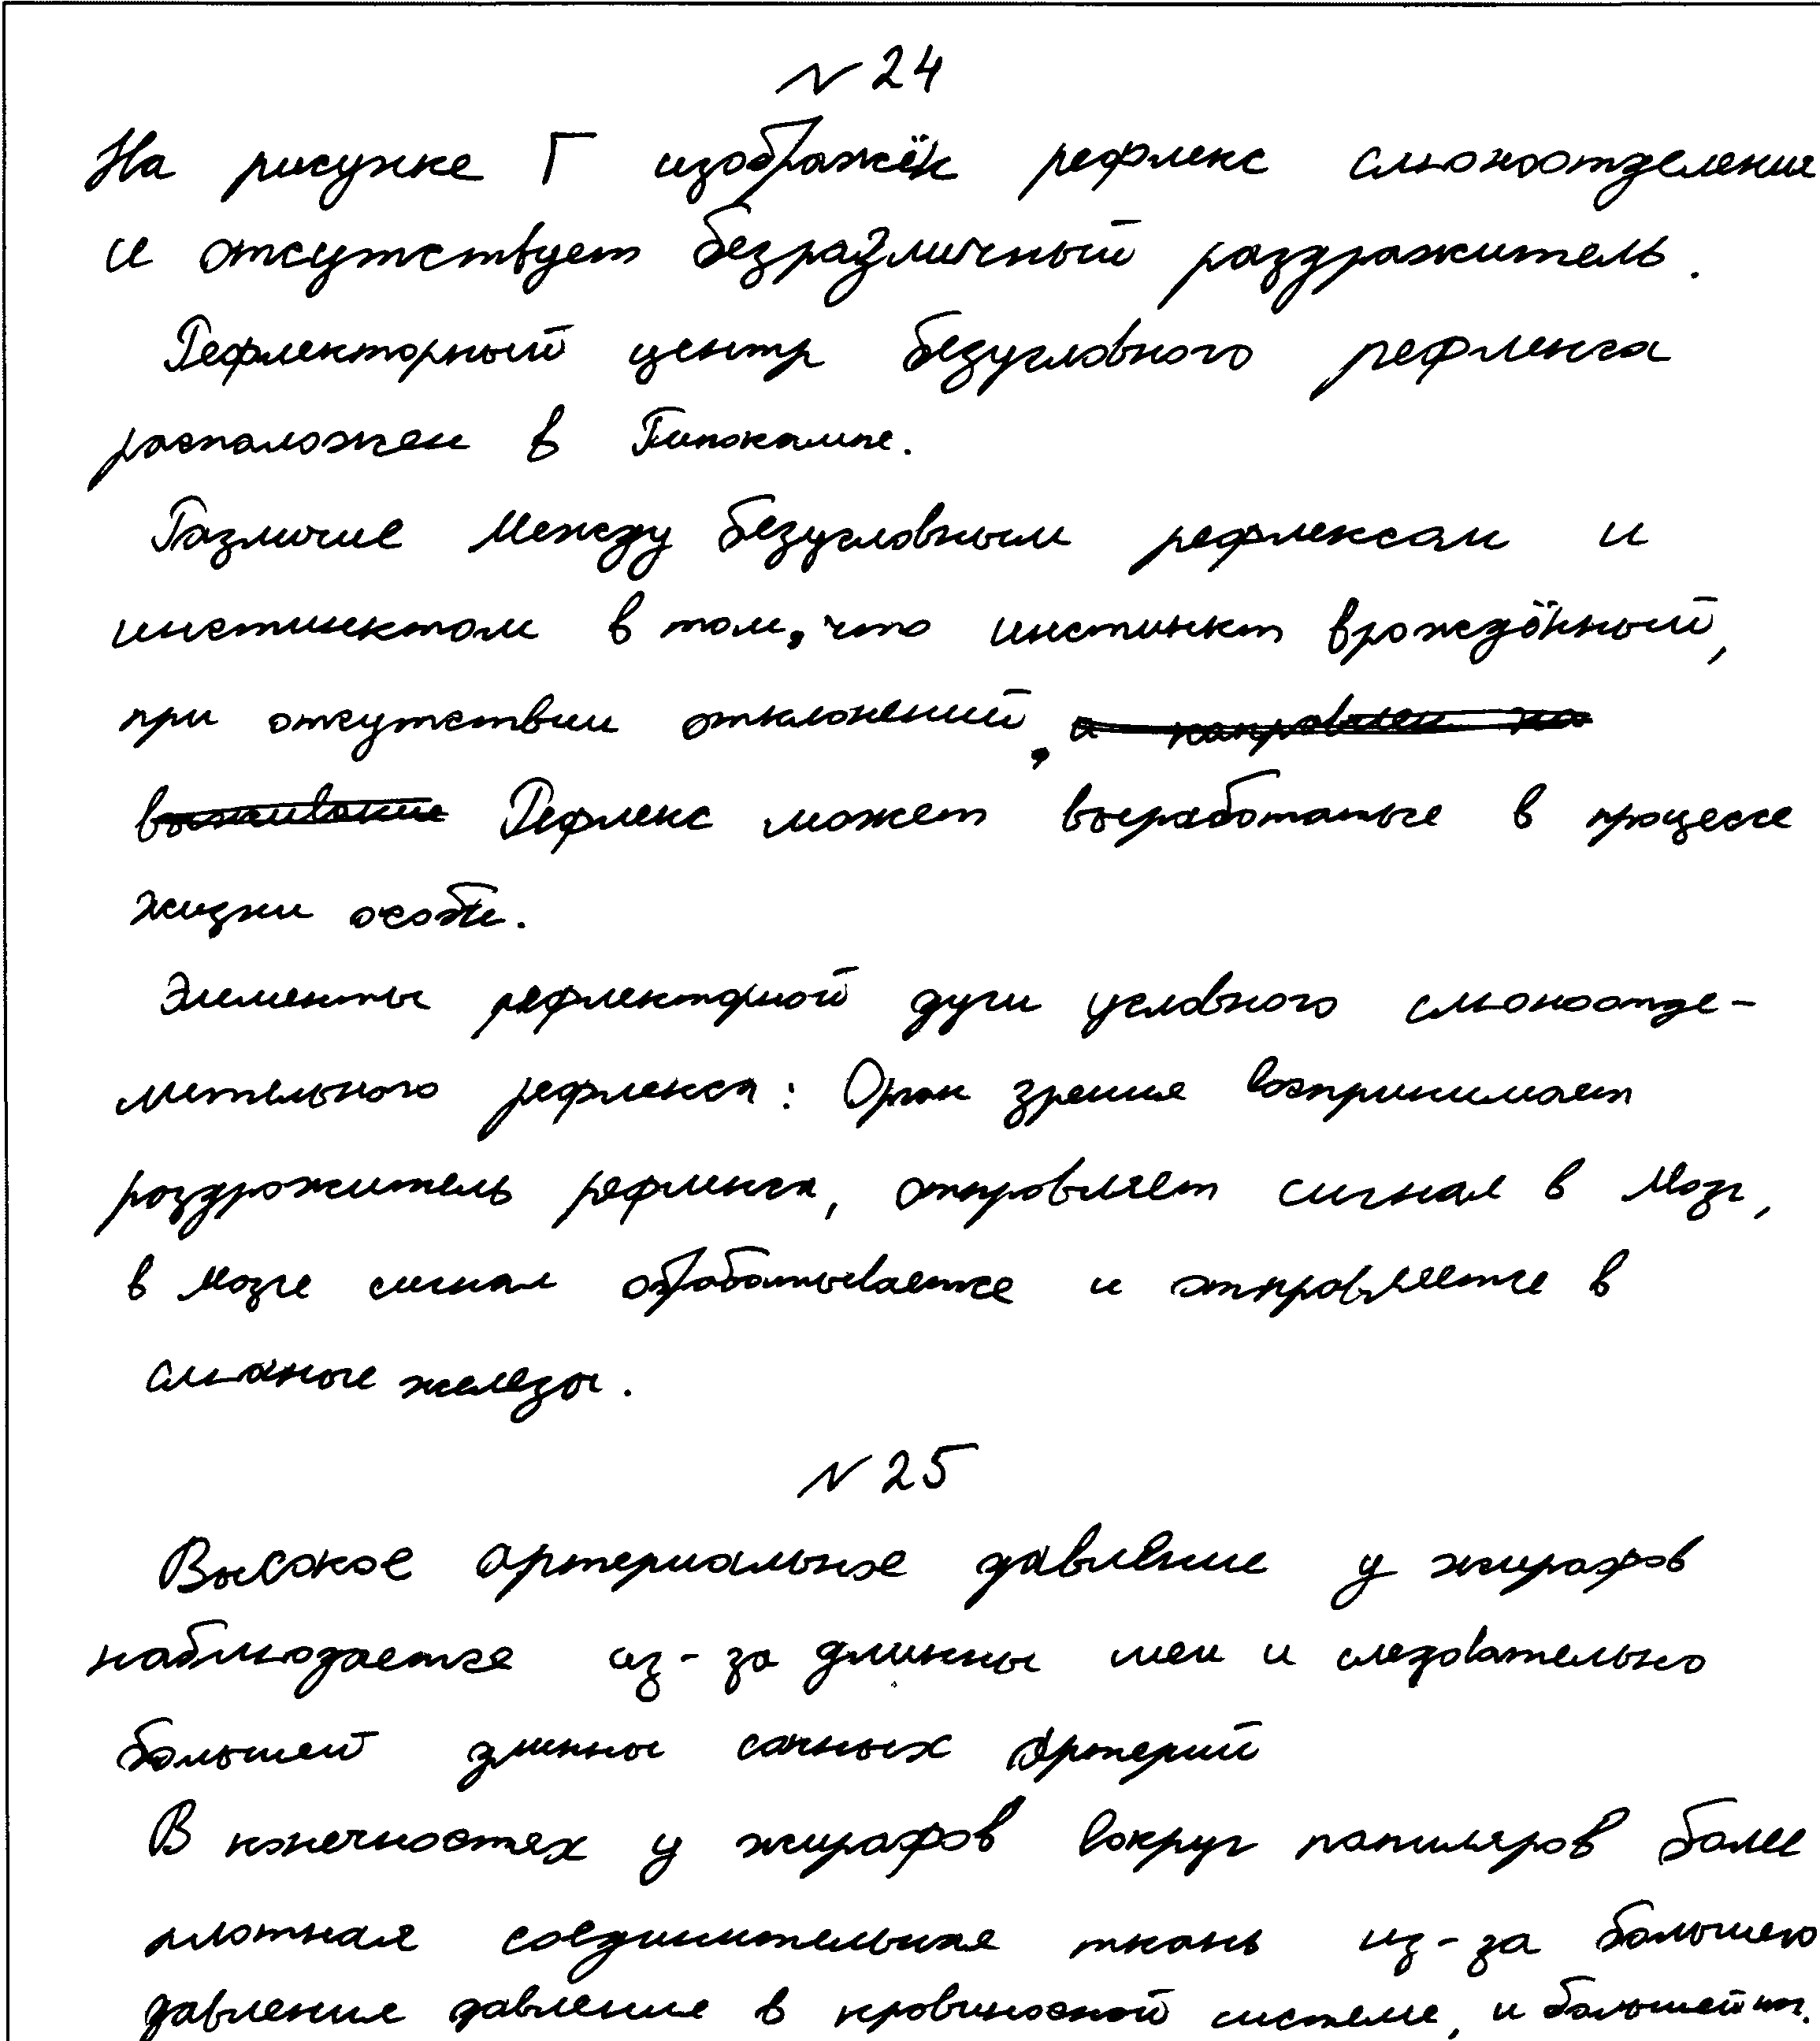 N 24
На рисунке Г изображён рефлекс слюноотделения
и отсутствует безразличный раздражитель.
Рефлекторный центр безусловного рефлекса
расположен в Гипокампе.
Различие Между безусловным рефлексом и
инстинктом в том, что инстинкт врождённый,
при отсутствии отклонений, а направлен на
выживание Рефлекс может выработаться в процессе
жизни особи.
Элементы рефлекторной дуги условного слюноотде-
лительного рефлекса: Орган зрения воспринимает
раздрожитель рефлекса, отправляет сигнал в Мозг,
в мозге сигнал обрабатывается и отправляется в
слюнные железы.
N 25
Высокое артериальное давление у жирафов
наблюдается из-за длинны шеи и следовательно
большей длинны сонных артерий
В конечностях у жирафов вокруг капиляров более
плотная соединительная ткань из-за большего
давления давления в кровиносной системе, и большей